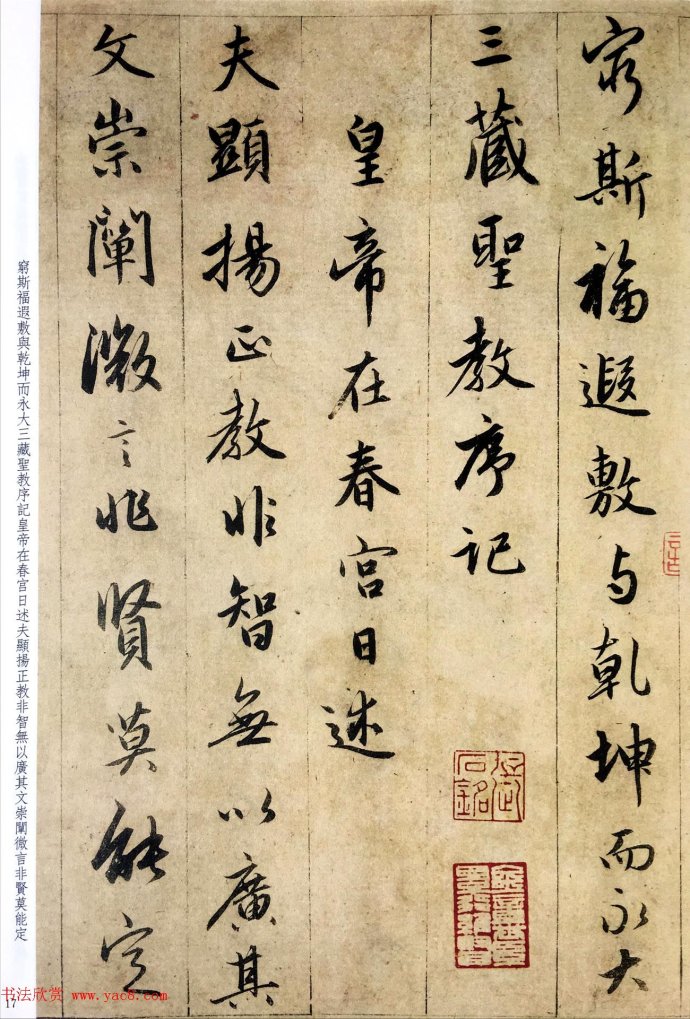 窮斯福遐敷与乾坤而永大
三藏聖教序记
皇帝在春宫日述
夫顯揚正教非智無以廣其
文崇闡微言非賢莫能定
窮斯福遐敷與乾坤而永大三藏聖教序記皇帝在春宮日述夫顯揚正教非智無以廣其文崇闡微言非賢莫能定
17
书法欣赏 www.yac8.com